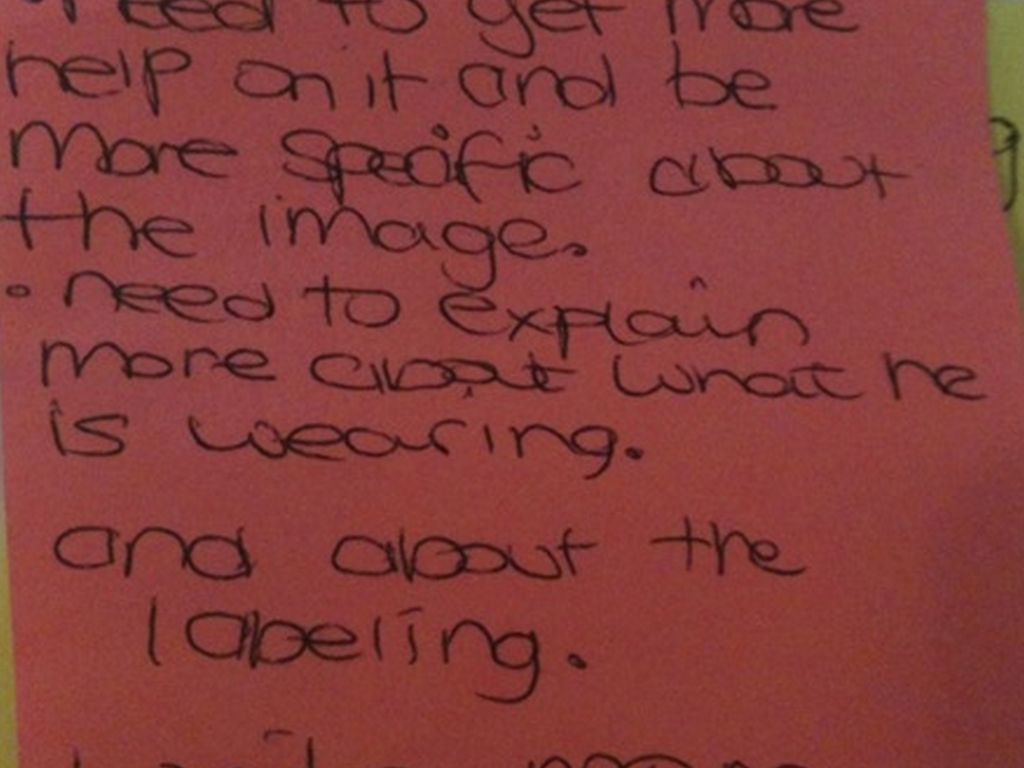 need to get more
help on it and be
more specific about
the image.
• need to explain
more about what he
is wearing.
and about the
labeling.